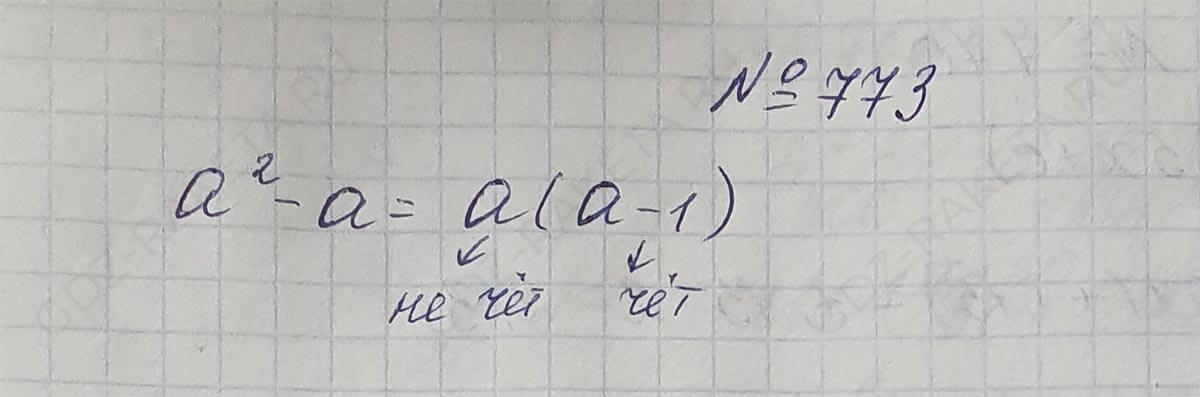 № 773
a² - a = a(a - 1)
↙ ↙
не чёт чёт